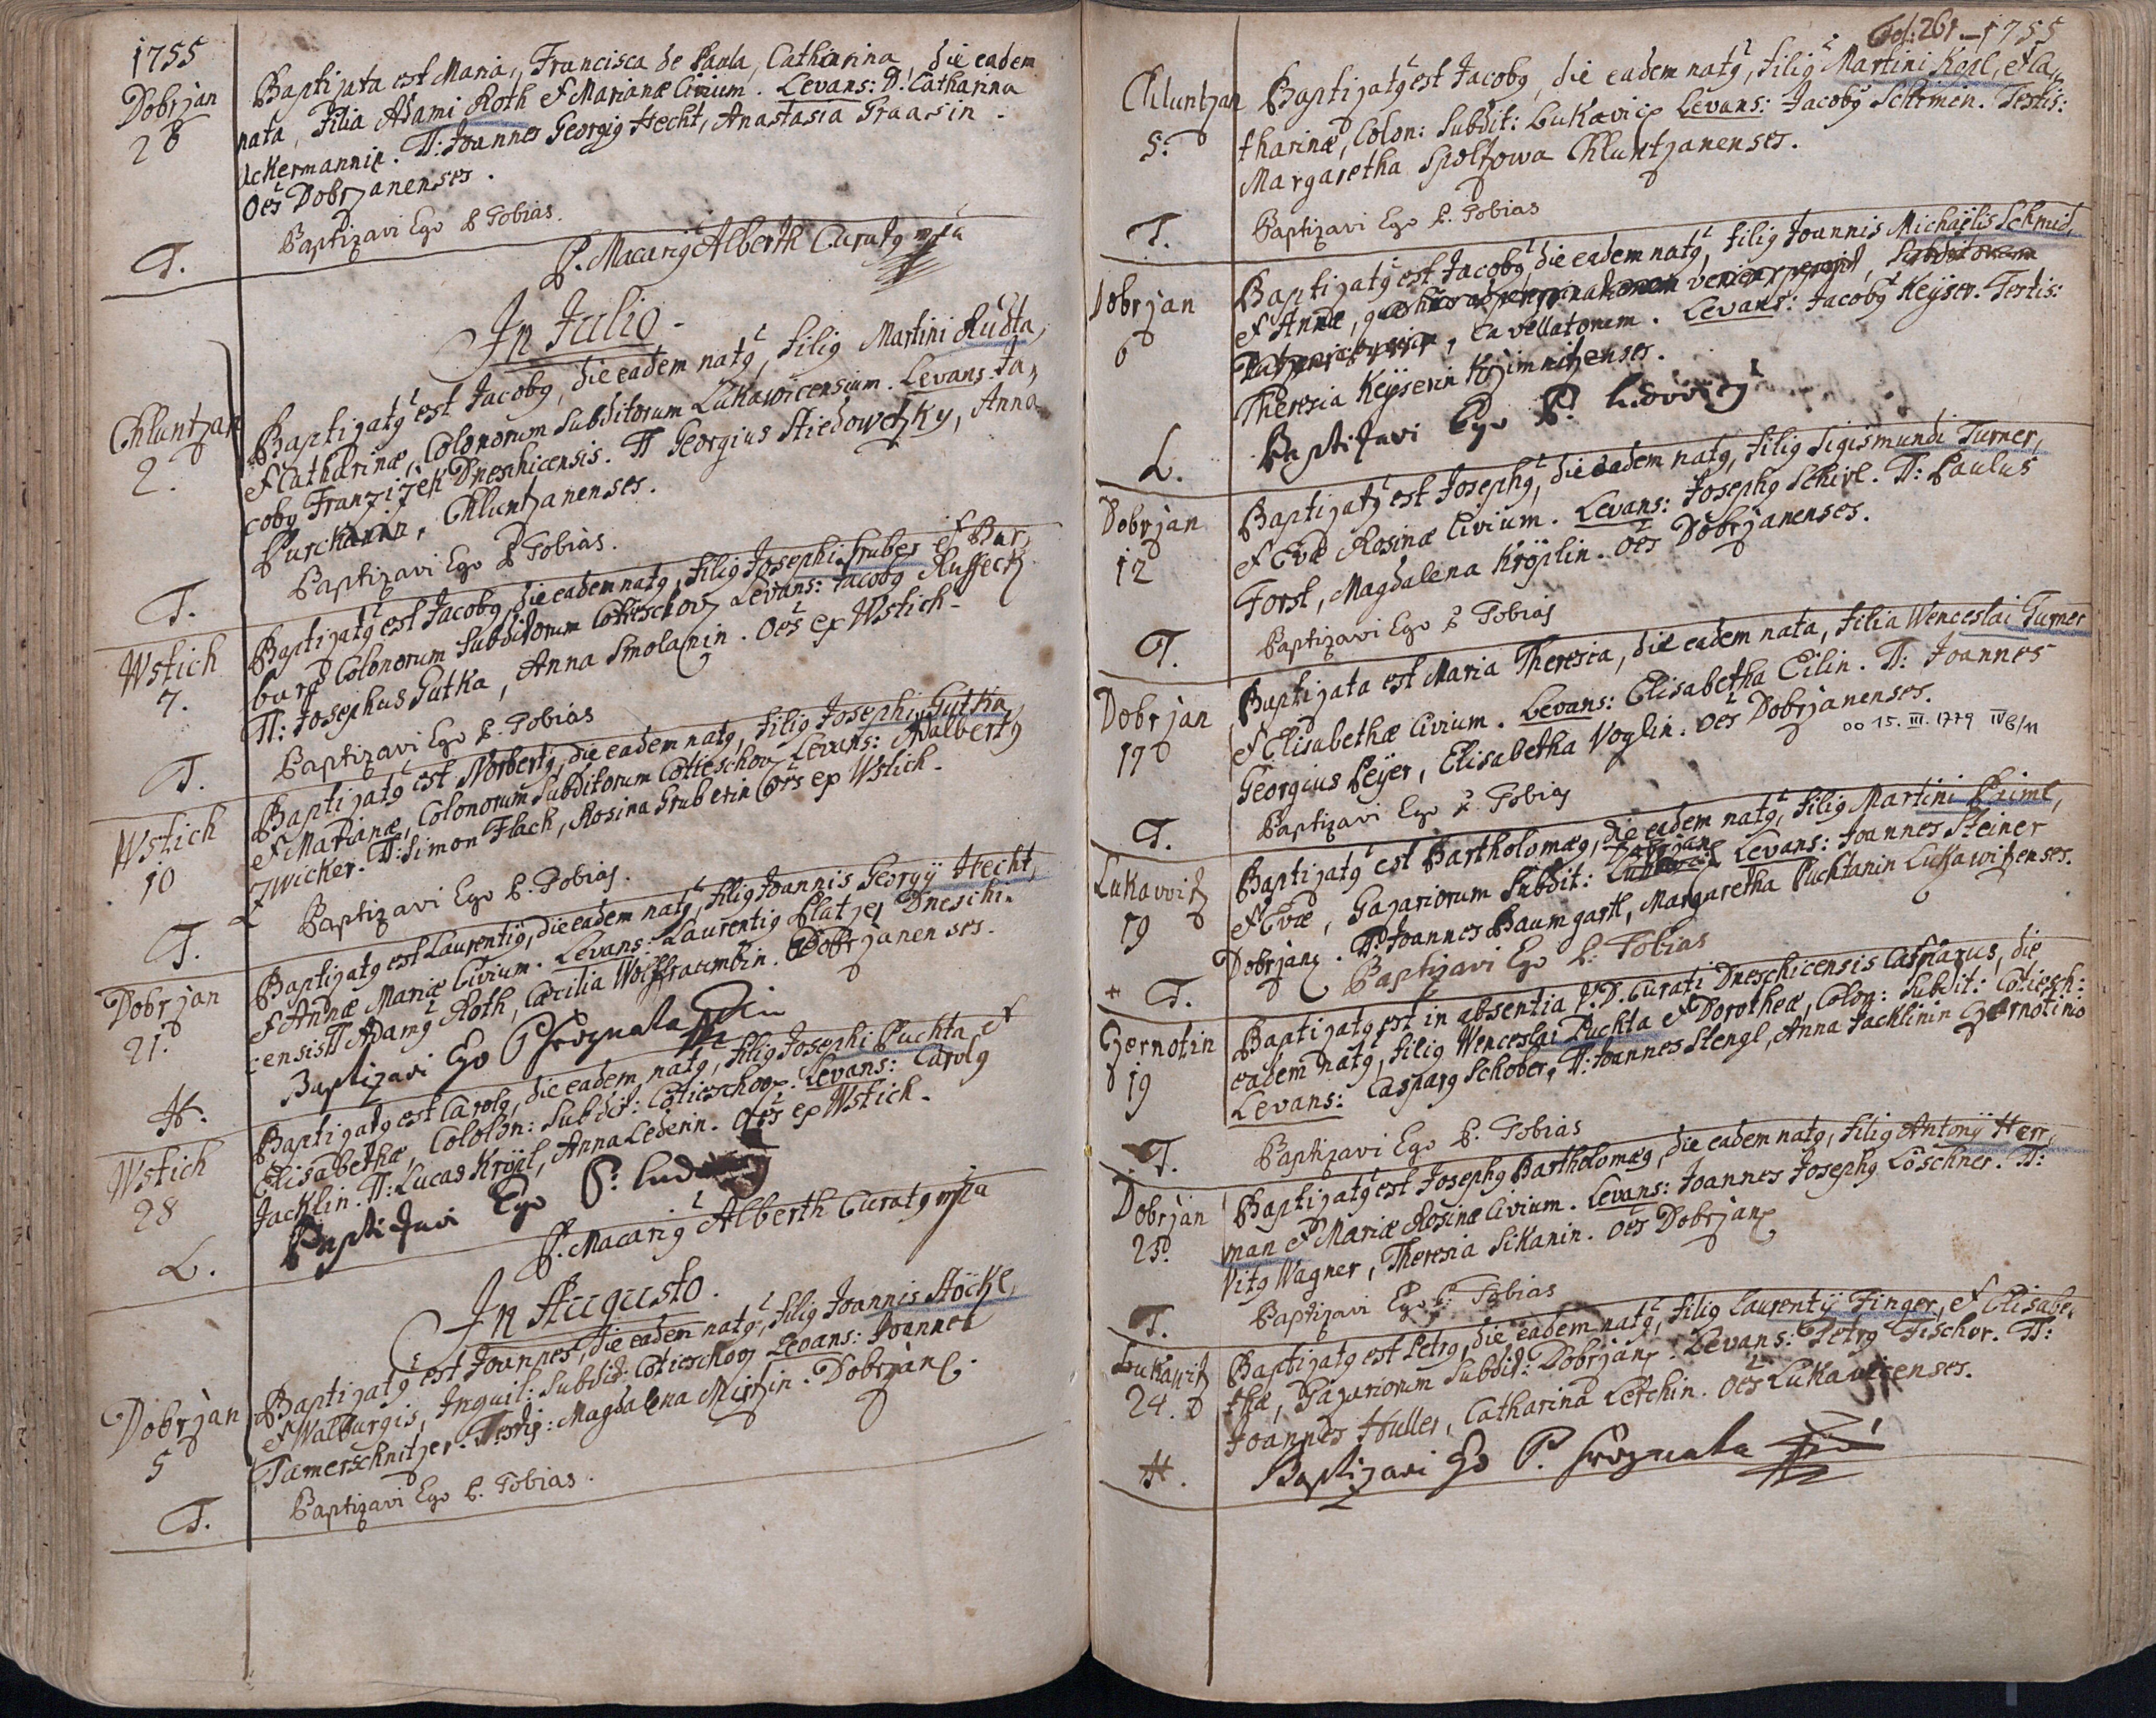 1755
Dobrzan
28
Baptizata est Maria, Francisca de Paula, Catharina, die eadem
nata, Filia Adami Roth et Marianæ Civium. Levans: D. Catharina
Ackermannin. TT: Joannes Georgig Hecht, Anastasia Graasin.
Oes Dobrzanenses.
Baptizavi Ego P. Tobias.
T.
P. Macarig Alberth Curatg mpia
In Julio.
Chluntzan
2.
Baptizatg est Jacobg, die eadem natg, filig Martini Rudta,
et Catharinæ, Colonorum Subditorum Lukawicensium. Levans Ja,,
cobg Franzizek Dneshicensis. TT Georgius Stiedowetzky, Anna
Purckanka, Chluntzanenses.
Baptizavi Ego P Tobias.
T.
Wstich
7.
Baptizatg est Jacobg, die eadem natg, filig Josephi Gruber et Bar,,
baræ Colonorum Subditorum Cotieschov. Levans: Jacobg Russeck
TT: Josephus Gutka, Anna Smolanin. Oes ex Wstich.
Baptizavi Ego P. Tobias
T.
Wstich
10
Baptizatg est Norbertg, die eadem natg, filig Josephi Gutka
et Marianæ, Colonorum Subditorum Cotieschov. Levans: Adalbertg
Zwicker. TT: Simon Flach, Rosina Gruberin Oes ex Wstich.
Baptizavi Ego P. Tobias.
T.
Dobrzan
21.
Baptizatg est Laurentig, die eadem natg, filig Joannis Georgÿ Hecht,
et Annæ Mariæ Civium. Levans: Laurentig Platzer Dneschi,,
censis TT Adamg Roth, Cæcilia Wolffraumbin. Dobrzanenses.
Baptizavi Ego P Hroznata
H.
Wstich
28
Baptizatg est Carolg, die eadem natg, filig Josephi Puchta et
Elisabethæ, Colohn: Subdit: Cotieschov. Levans: Carolg
Jacklin. TT: Lucas Kröpl, Anna Lederin. Oes ex Wstich.
Baptizavi Ego P. Ludovig
L.
P. Macarig Alberth Curatg mpia
In Augusto.
Dobrzan
5
Baptizatg est Joannes, die eadem natg, filig Joannis Stöckl,
et Walburgis, Inquil: Subdit: Cotieschov Levans: Joannes
Tamerschnitzer. Testis: Magdalena Mirtzin. Dobrzan.
Baptizavi Ego P. Tobias.
T.
Fol: 261 – 1755
Chluntzan
5.
Baptizatg est Jacobg, die eadem natg, filig Martini Kepl, et Ca,,
tharinæ, Colon: Subdit: Lukavic. Levans: Jacobg Schimen. Testis:
Margaretha Spoltzowa Chluntzanenses.
Baptizavi Ego P. Tobias
T.
Dobrzan
6
Baptizatg est Jacobg, die eadem natg, filig Joannis Michaëlis Schmid,
et Annæ,
cavellatorum. Levans: Jacobg Keÿser. Testis:
Theresia Keÿserin Kzimnitzenses.
Baptizavi Ego P. Ludovig
L.
Dobrzan
12
Baptizatg est Josephg, die eadem natg, filig Sigismundi Turner,
et Evæ Rosinæ Civium. Levans: Josephg Schirl. TT: Paulus
Forst, Magdalena Kröplin. Oes Dobrzanenses.
Baptizavi Ego P Tobias
T.
Dobrzan
17
Baptizata est Maria Theresia, die eadem nata, filia Wenceslai Turner
et Elisabethæ Civium. Levans: Elisabetha Eilin. TT: Joannes
Georgius Peÿer, Elisabetha Voglin. Oes Dobrzanenses.
oo 15. III. 1779 IV 6/11
Baptizavi Ego P. Tobias
T.
Lukawitz
19
Baptizatg est Bartholomæg, die eadem natg, filig Martini Prime,
et Evæ, Gazariorum Subdit: Dobrzan. Levans: Joannes Steiner
Dobrzan. TT: Joannes Baumgartl, Margaretha Puchtanin Lukawitzenses.
Baptizavi Ego P. Tobias
+ T.
Czernotin
19
Baptizatg est in absentia P. D. Curati Dneschicensis Casparus, die
eadem natg, filig Wenceslai Puchta et Dorotheæ, Colon: Subdit: Cotiesch:
Levans: Casparg Schober, TT: Joannes Stengl, Anna Jacklinin Czernotino
Baptizavi Ego P. Tobias
T.
Dobrzan
23.
Baptizatg est Josephg Bartholomæg, die eadem natg, filig Antonÿ Herr,,
man et Mariæ Rosinæ Civium. Levans: Joannes Josephg Löschner. TT:
Vitg Wagner, Theresia Sikanin. Oes Dobrzan.
Baptizavi Ego P. Tobias
T.
Lukawitz
24.
Baptizatg est Petrg, die eadem natg, filig Laurentÿ Finger, et Elisabe,,
thæ, Gazariorum Subdit: Dobrzan. Levans: Petrg Fischer. TT:
Joannes Huller, Catharina Lerchin. Oes Lukavicenses.
Baptizavi Ego P. Hroznata
H.